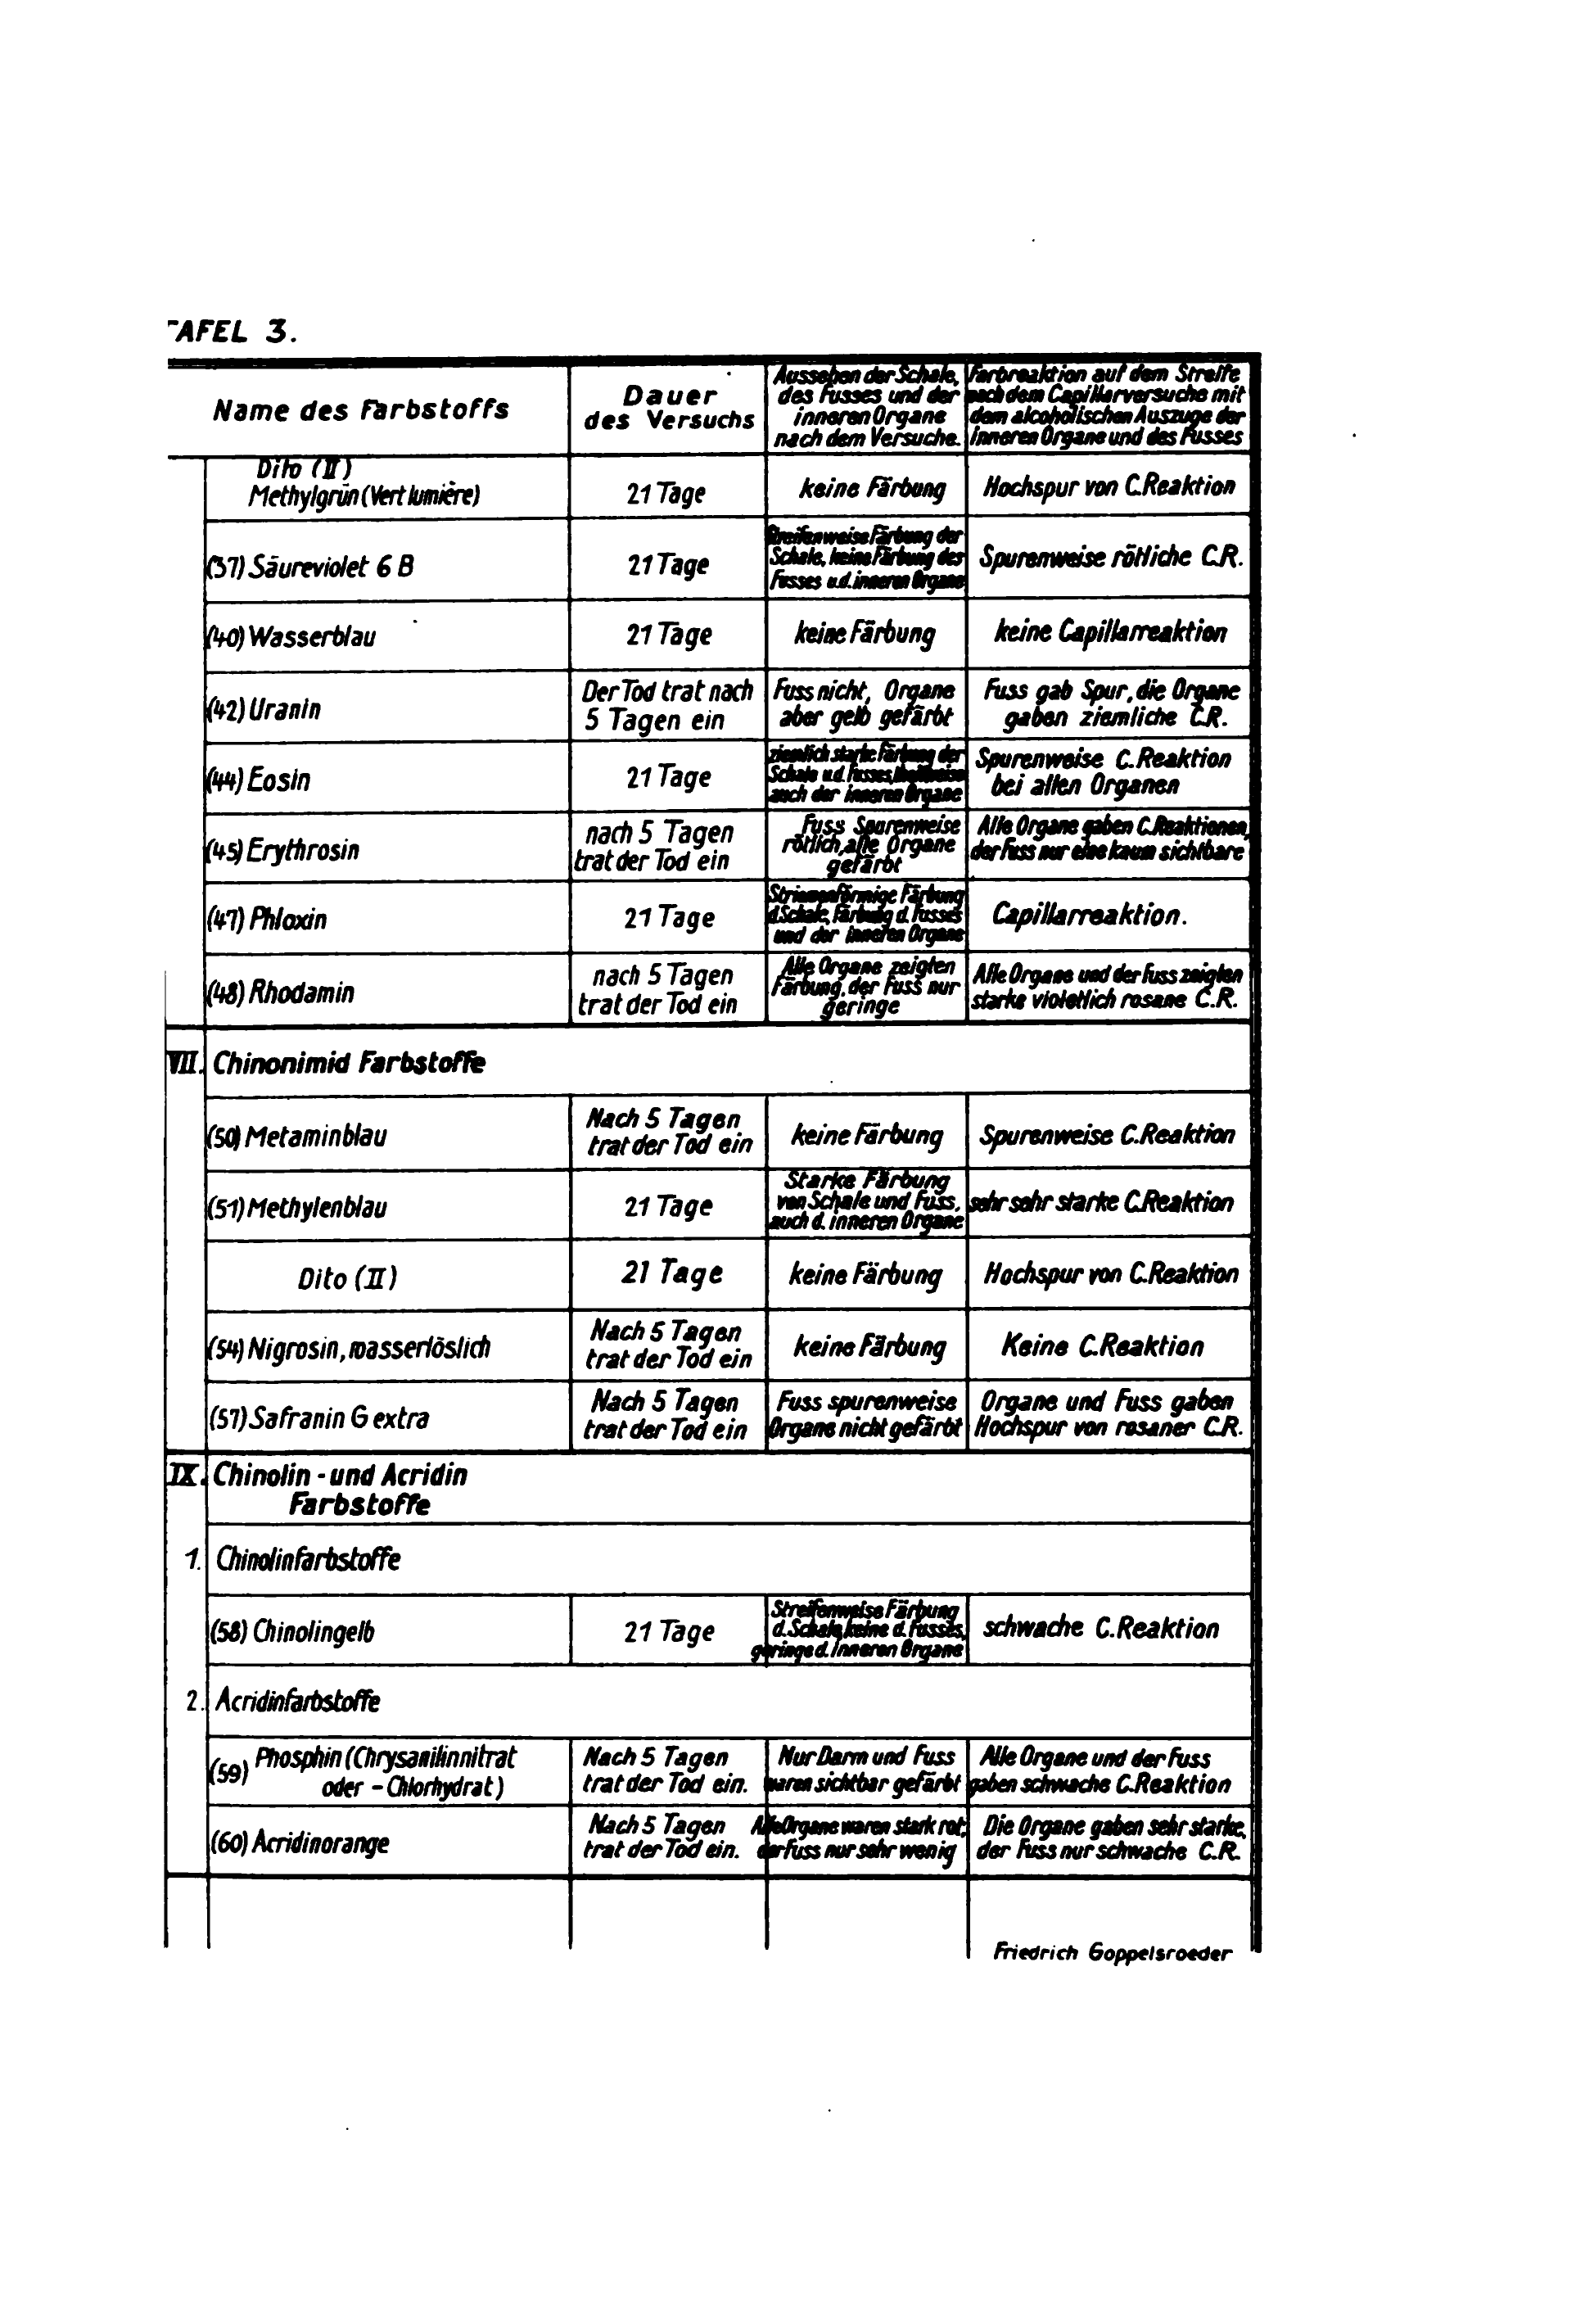 TAFEL 3.
Name des Farbstoffs
Dauer
des Versuchs
Aussehen der Schale,
des Fusses und der
inneren Organe
nach dem Versuche.
Farbreaktion auf dem Streife
nach dem Capillarversuche mit
dem alcoholischen Auszuge der
inneren Organe und des Fusses
Dito (II)
Methylgrün (Vert lumière)
21 Tage
keine Färbung
Hochspur von C.Reaktion
(37) Säureviolet 6 B
21 Tage
Streifenweise Färbung der
Schale, keine Färbung des
Fusses u.d. inneren Organe
Spurenweise rötliche C.R.
(40) Wasserblau
21 Tage
keine Färbung
keine Capillarreaktion
(42) Uranin
Der Tod trat nach
5 Tagen ein
Fuss nicht, Organe
aber gelb gefärbt
Fuss gab Spur, die Organe
gaben ziemliche C.R.
(44) Eosin
21 Tage
ziemlich starke Färbung der
Schale u.d. Fusses, theilweise
auch der inneren Organe
Spurenweise C.Reaktion
bei allen Organen
(45) Erythrosin
nach 5 Tagen
trat der Tod ein
Fuss Spurenweise
rötlich, alle Organe
gefärbt
Alle Organe gaben C.Reaktionen,
der Fuss nur eine kaum sichtbare
(47) Phloxin
21 Tage
Striemenförmige Färbung
d.Schale, Färbung d. Fusses
und der inneren Organe
Capillarreaktion.
(48) Rhodamin
nach 5 Tagen
trat der Tod ein
Alle Organe zeigten
Färbung, der Fuss nur
geringe
Alle Organe und der Fuss zeigten
starke violetlich rosane C.R.
VII. Chinonimid Farbstoffe
(50) Metaminblau
Nach 5 Tagen
trat der Tod ein
keine Färbung
Spurenweise C.Reaktion
(51) Methylenblau
21 Tage
Starke Färbung
von Schale und Fuss,
auch d. inneren Organe
sehr sehr starke C.Reaktion
Dito (II)
21 Tage
keine Färbung
Hochspur von C.Reaktion
(54) Nigrosin, wasserlöslich
Nach 5 Tagen
trat der Tod ein
keine Färbung
Keine C.Reaktion
(57) Safranin G extra
Nach 5 Tagen
trat der Tod ein
Fuss spurenweise
Organe nicht gefärbt
Organe und Fuss gaben
Hochspur von rosaner C.R.
IX. Chinolin - und Acridin
Farbstoffe
1. Chinolinfarbstoffe
(58) Chinolingelb
21 Tage
Streifenweise Färbung
d. Schale, keine d. Fusses,
geringe d. inneren Organe
schwache C.Reaktion
2. Acridinfarbstoffe
(59) Phosphin (Chrysanilinnitrat
oder - Chlorhydrat)
Nach 5 Tagen
trat der Tod ein.
Nur Darm und Fuss
waren sichtbar gefärbt
Alle Organe und der Fuss
gaben schwache C.Reaktion
(60) Acridinorange
Nach 5 Tagen
trat der Tod ein.
Alle Organe waren stark rot,
der Fuss nur sehr wenig
Die Organe gaben sehr starke,
der Fuss nur schwache C.R.
Friedrich Goppelsroeder